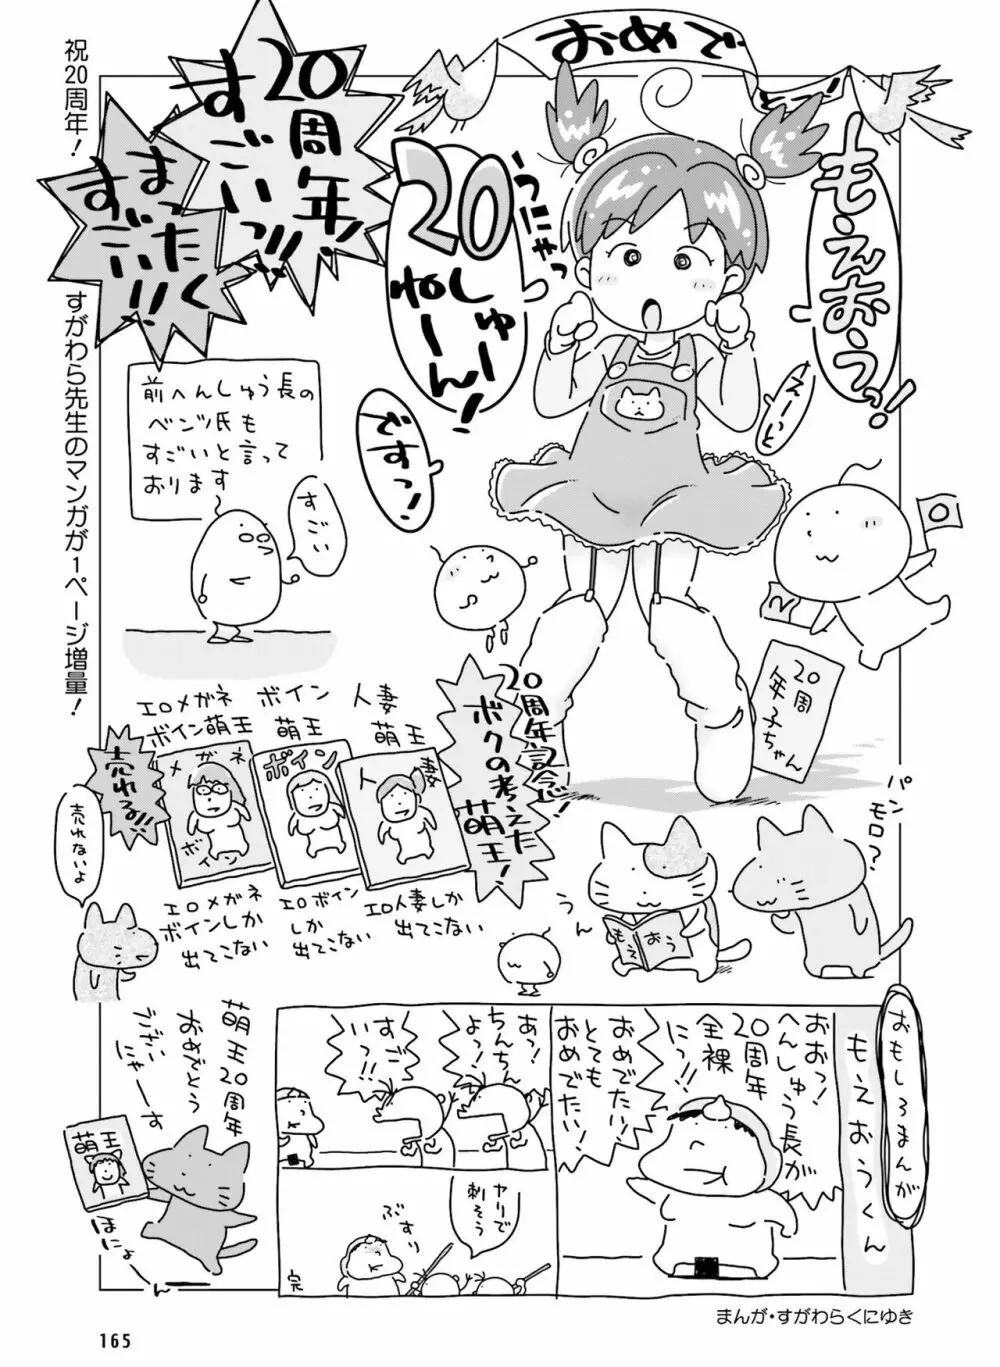 祝20周年！　すがわら先生のマンガが1ページ増量！
おめで
とーっ！
もえおうっ！
えーいと
うにゃっ
20
しゅー
ねーん！
でーすっ！
20周年！
すごいっ!!
まったく
すごい!!
前へんしゅう長の
ベンツ氏も
すごいと言って
おります
すごい
20周
年子ちゃん
20周年記念！
ボクの考えた
萌王！
人妻
萌王
人妻
エロ人妻しか
出てこない
ボイン
萌王
ボイン
エロボイン
しか
出てこない
エロメガネ
ボイン萌王
メガネ
ボイン
エロメガネ
ボインしか
出てこない
売れる!!
売れないよ
パン
モロ？
うん
もえ
おう
おもしろまんが
もえおうくん
おおっ！
へんしゅう長が
20周年
全裸
にっ!!
おめでたい！
とても
おめでたい！
あっ！
ちんちん
よっ！
すご
いっ!!
ヤリで
刺そう
ぶすり
完
萌王20周年
おめでとう
ござい
にゃーす
萌王
ほにょ
ーん
まんが・すがわらくにゆき
165